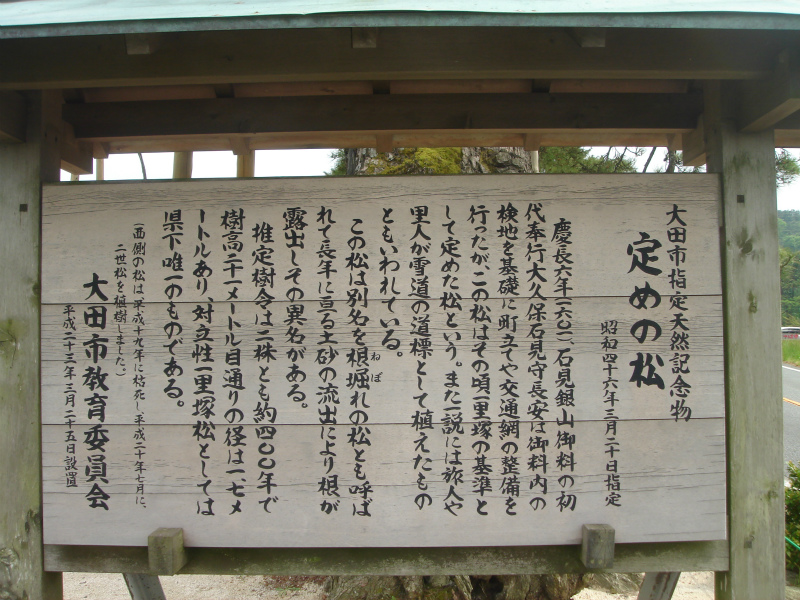 大田市指定天然記念物
定めの松
昭和四十六年三月二十日指定
慶長六年(一六〇一)、石見銀山御料の初
代奉行大久保石見守長安は御料内の
検地を基礎に町立てや交通網の整備を
行ったがこの松はその頃一里塚の基準と
して定めた松という。また一説には旅人や
里人が雪道の道標として植えたもの
ともいわれている。
この松は別名を根堀れの松とも呼ば
ねぼ
れて長年に亘る土砂の流出により根が
露出しその異名がある。
推定樹令は二株とも約四〇〇年で
樹高二十一メートル目通りの径は一、七メ
ートルあり、対立性一里塚松としては
県下唯一のものである。
(西側の松は平成十九年に枯死し平成二十年七月に、
二世松を植樹しました。)
大田市教育委員会
平成二十三年三月二十五日設置